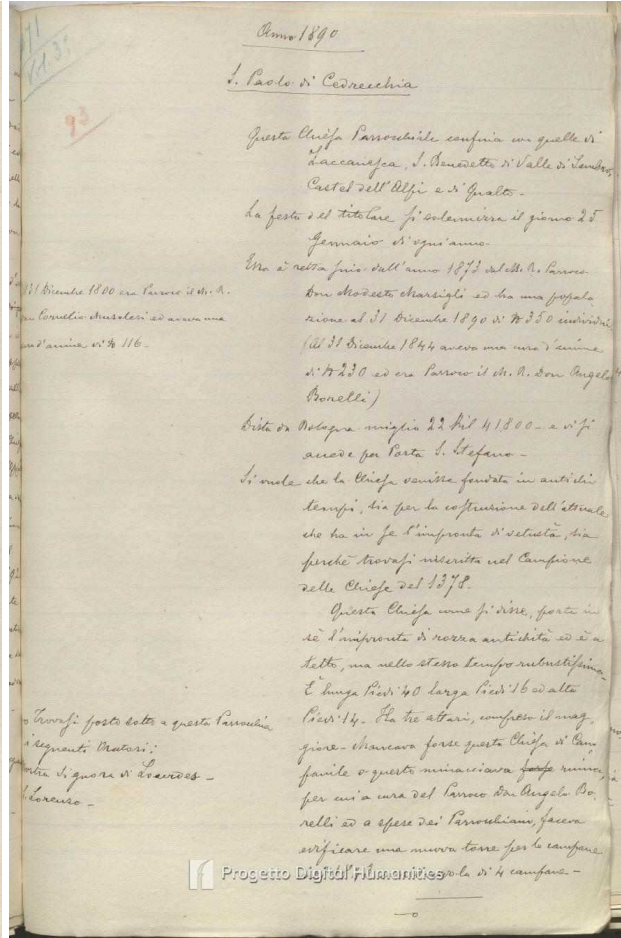 71
Vol. 35
93
Anno 1890
S. Paolo di Cedrecchia
Questa Chiesa Parrocchiale confina con quelle di
Zaccanesca, S. Benedetto di Valle di Sambro,
Castel dell'Alpi e di Qualto -
La festa del titolare si solennizza il giorno 25
Gennaio di ogni anno -
Essa è retta fino dall'anno 1873 dal M. R. Parroco
Don Modesto Marsigli ed ha una popola
zione al 31 Dicembre 1890 di N 350 individui
(Al 31 Dicembre 1844 aveva una cura d'anime
di N 230 ed era Parroco il M. R. Don Angelo
Borelli)
31 Dicembre 1800 era Parroco il M. R.
Cornelio Musolesi ed aveva una
d'anime di N 116 -
Dista da Bologna miglia 22 Kil 41,800 - e vi si
accede per Porta S. Stefano -
Si vuole che la Chiesa venisse fondata in antichi
tempi, sia per la costruzione dell'attuale
che ha in se l'impronta di vetustà, sia
perchè trovasi inscritta nel Campione
delle Chiese del 1378.
Questa Chiesa come si disse, porta in
sè l'impronta di rozza antichità ed è a
tetto, ma nello stesso tempo robustissima.
È lunga Piedi 40 larga Piedi 16 ed alta
Piedi 14 - Ha tre altari, compreso il mag-
giore - Mancava forse questa Chiesa di Cam
panile o questo minacciava forse ruina,
per cui a cura del Parroco Don Angelo Bo-
relli ed a spese dei Parrocchiani, faceva
edificare una nuova torre per le campane
di 4 campane -
Trovasi posto sotto a questa Parrocchia
i seguenti Oratori:
Signora di Lourdes -
Lorenzo -
Progetto Digital Humanities